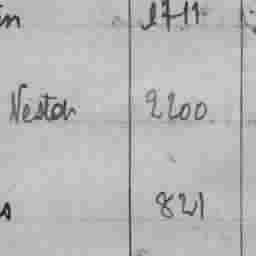 in 1711
Nestor 2200.
s 821